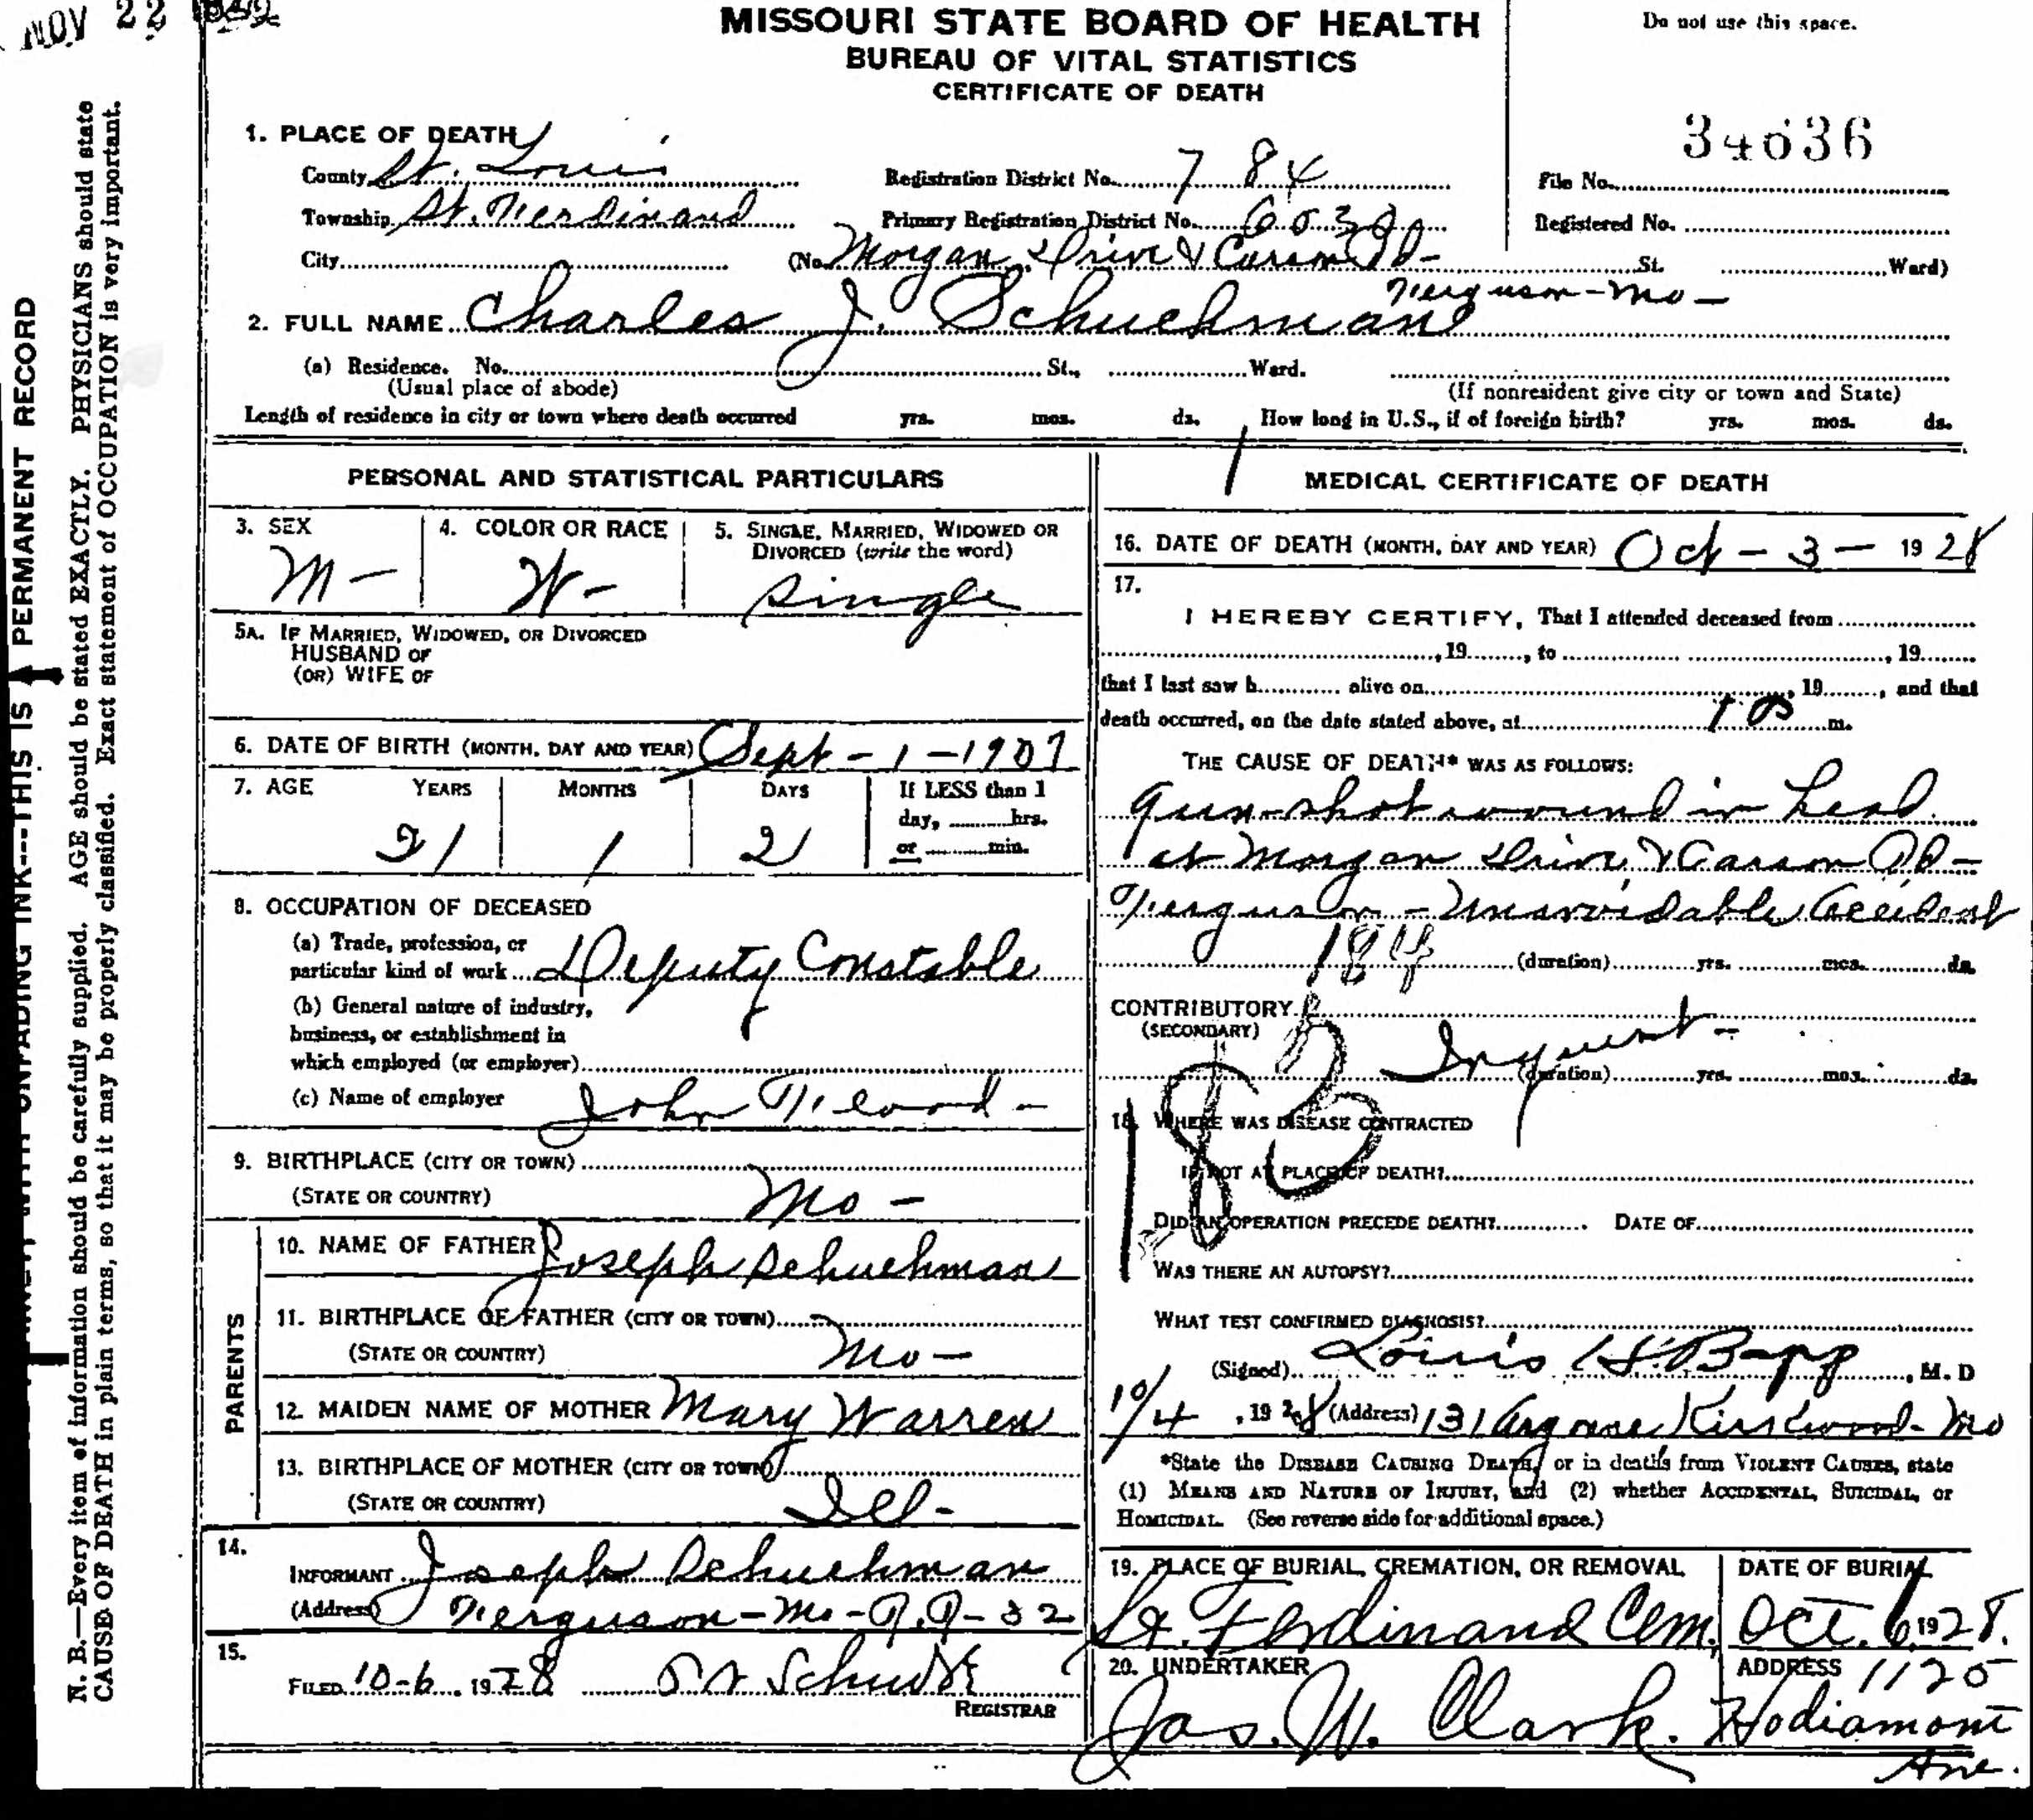 NOV 22
MISSOURI STATE BOARD OF HEALTH
BUREAU OF VITAL STATISTICS
CERTIFICATE OF DEATH
Do not use this space.
1. PLACE OF DEATH
County St. Louis
Township St. Ferdinand
City
Registration District No. 784
Primary Registration District No.
(No. Morgan Drive & Carson Rd- St. Ward)
Ferguson-Mo-
34636
File No.
Registered No.
2. FULL NAME Charles J. Schuchman
(a) Residence. No. St., Ward.
(Usual place of abode)
(If nonresident give city or town and State)
Length of residence in city or town where death occurred yrs. mos. ds. How long in U.S., if of foreign birth? yrs. mos. ds.
PERSONAL AND STATISTICAL PARTICULARS
3. SEX
M-
4. COLOR OR RACE
W-
5. SINGLE, MARRIED, WIDOWED OR
DIVORCED (write the word)
Single
5A. IF MARRIED, WIDOWED, OR DIVORCED
HUSBAND OF
(OR) WIFE OF
6. DATE OF BIRTH (MONTH, DAY AND YEAR) Sept-1-1907
7. AGE YEARS MONTHS DAYS If LESS than 1
day, hrs.
or min.
21 1 2
8. OCCUPATION OF DECEASED
(a) Trade, profession, or
particular kind of work Deputy Constable
(b) General nature of industry,
business, or establishment in
which employed (or employer)
(c) Name of employer John
9. BIRTHPLACE (CITY OR TOWN)
(STATE OR COUNTRY) Mo-
PARENTS
10. NAME OF FATHER Joseph Schuchman
11. BIRTHPLACE OF FATHER (CITY OR TOWN)
(STATE OR COUNTRY) Mo-
12. MAIDEN NAME OF MOTHER Mary Warren
13. BIRTHPLACE OF MOTHER (CITY OR TOWN)
(STATE OR COUNTRY) Ill-
14.
INFORMANT Joseph Schuchman
(Address) Ferguson-Mo-R.R-32
15.
FILED 10-6, 1928
REGISTRAR
MEDICAL CERTIFICATE OF DEATH
16. DATE OF DEATH (MONTH, DAY AND YEAR) Oct-3-1928
17.
I HEREBY CERTIFY, That I attended deceased from
, 19, to , 19
that I last saw h alive on , 19, and that
death occurred, on the date stated above, at 1 00 m.
THE CAUSE OF DEATH* WAS AS FOLLOWS:
Gun-shot wound in head
at Morgan Drive & Carson Rd-
Ferguson-Unavoidable Accident
184
(duration) yrs. mos. ds.
CONTRIBUTORY
(SECONDARY)
Inquest-
(duration) yrs. mos. ds.
183
18. WHERE WAS DISEASE CONTRACTED
IF NOT AT PLACE OF DEATH?
DID AN OPERATION PRECEDE DEATH? DATE OF
WAS THERE AN AUTOPSY?
WHAT TEST CONFIRMED DIAGNOSIS?
(Signed) Louis H. Bopp, M. D
10/4, 1928 (Address) 131 Argonne Kirkwood-Mo
*State the DISEASE CAUSING DEATH, or in deaths from VIOLENT CAUSES, state
(1) MEANS AND NATURE OF INJURY, and (2) whether ACCIDENTAL, SUICIDAL, or
HOMICIDAL. (See reverse side for additional space.)
19. PLACE OF BURIAL, CREMATION, OR REMOVAL
St. Ferdinand Cem.
DATE OF BURIAL
Oct. 6, 1928.
20. UNDERTAKER
Jas. W. Clark.
ADDRESS 1125
Hodiamont
Ave.
THIS IS A PERMANENT RECORD
N. B.—Every item of information should be carefully supplied. AGE should be stated EXACTLY. PHYSICIANS should state
CAUSE OF DEATH in plain terms, so that it may be properly classified. Exact statement of OCCUPATION is very important.